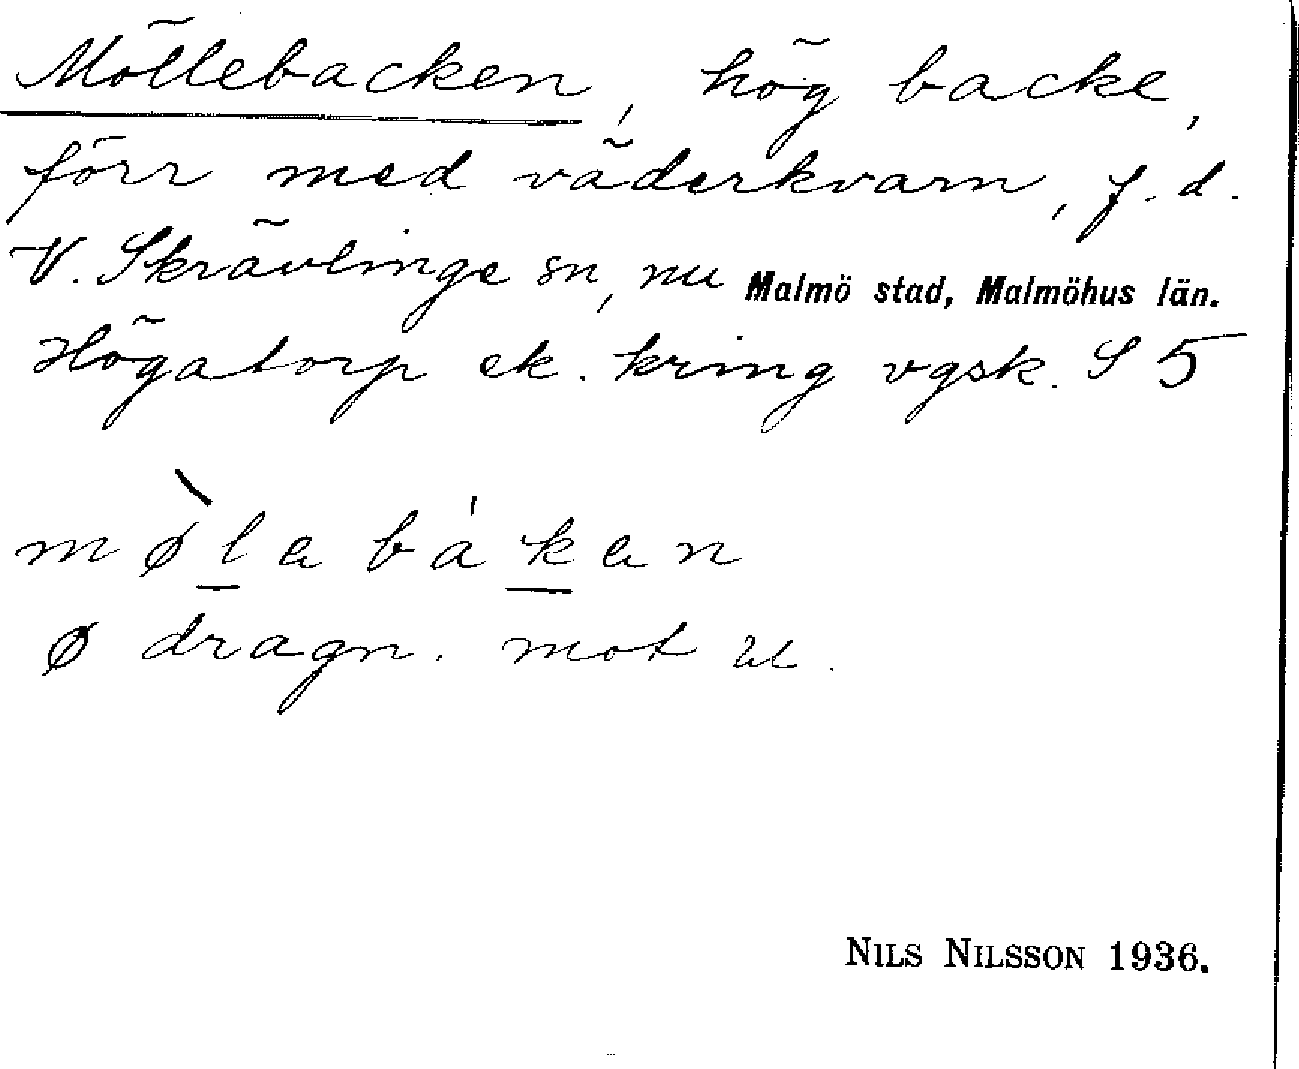 Möllebacken, hög backe,
förr med väderkvarn, f. d.
V. Skrävlinge sn, nu Malmö stad, Malmöhus län.
Högatorp ek. kring vgsk. S 5
mø̀labákan
ø dragn. mot u.
NILS NILSSON 1936.